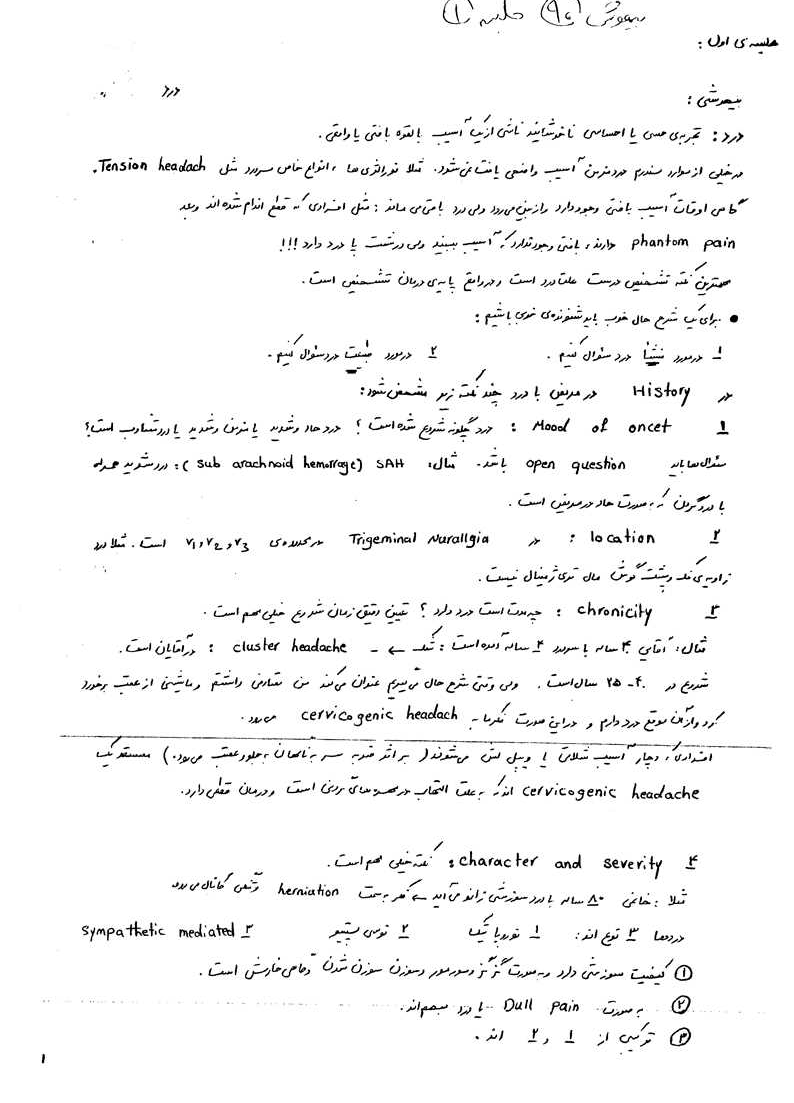 بیهوشی جلسه (۱)
جلسه ی اول :
درد
بیهوشی :
درد : تجربه ی حسی یا احساسی ناخوشایند ناشی از یک آسیب بالقوه بافتی یا واقعی .
در خیلی از موارد سندرم درد مزمن آسیب واضحی یافت نمی شود. مثلا نورالژی ها ، انواع خاص سردرد مثل Tension headach .
گاهی اوقات آسیب بافتی وجود دارد و از بین می رود ولی درد باقی می ماند : مثل افرادی که قطع اندام شده اند و بعد
phantom pain دارند ، بافتی وجود ندارد که آسیب ببیند ولی در شست پا درد دارد !!!
مهمترین نکته تشخیص درست علت درد است و در واقع پایه ی درمان تشخیص است .
● برای یک شرح حال خوب باید شنونده ی خوبی باشیم :
۱ در مورد منشأ درد سئوال کنیم . ۲ در مورد طبیعت درد سئوال کنیم .
در History در مریض با درد چند نکته زیر مشخص شود:
۱ Mood of oncet : درد چگونه شروع شده است ؟ درد حاد و شدید یا مزمن و شدید یا درد متناوب است؟
سئوال ها باید open question باشد. مثال: SAH (sub arachnoid hemorrage) : درد شدید همراه
با درد گردن که به صورت حاد در مریض است .
۲ location : در Trigeminal Nurallgia در محدوده ی V1, V2, V3 است . مثلا درد
زاویه ی فک و پشت گوش مال تری ژمینال نیست .
۳ chronicity : چه مدت است درد دارد ؟ تعیین دقیق زمان شروع خیلی مهم است .
مثال: آقای ۳۰ ساله با سردرد ۲ ساله آمده است : شک ← cluster headache : در آقایان است .
شروع در ۴۰-۲۵ سال است . ولی وقتی شرح حال می گیریم عنوان می کند من تصادفی داشتم و ماشینی از عقب برخورد
کرد و از آن موقع درد دارم و در این صورت فکر ما به cervicogenic headach می رود .
افرادی که دچار آسیب شلاقی یا ویپ لش می شوند ( بر اثر ضربه سر به ناگهان به جلو و عقب می رود . ) مستعد یک
cervicogenic headache اند که به علت التهاب در مهره های گردنی است و درمان قطعی دارد .
۴ character and severity : نکته خیلی مهم است .
مثلا : خانمی ۸۰ ساله با درد سوزشی زانو می آید ← فکر به سمت herniation و تنگی کانال می رود
دردها ۳ نوع اند : ۱ نوروپاتیک ۲ نوسی سپتیو ۳ sympathetic mediated
① کیفیت سوزشی دارد و به صورت گزگز و مورمور و سوزن سوزن شدن و گاهی خارش است .
② به صورت Dull pain یا درد مبهم اند.
③ ترکیبی از ۱ و ۲ اند .
۱